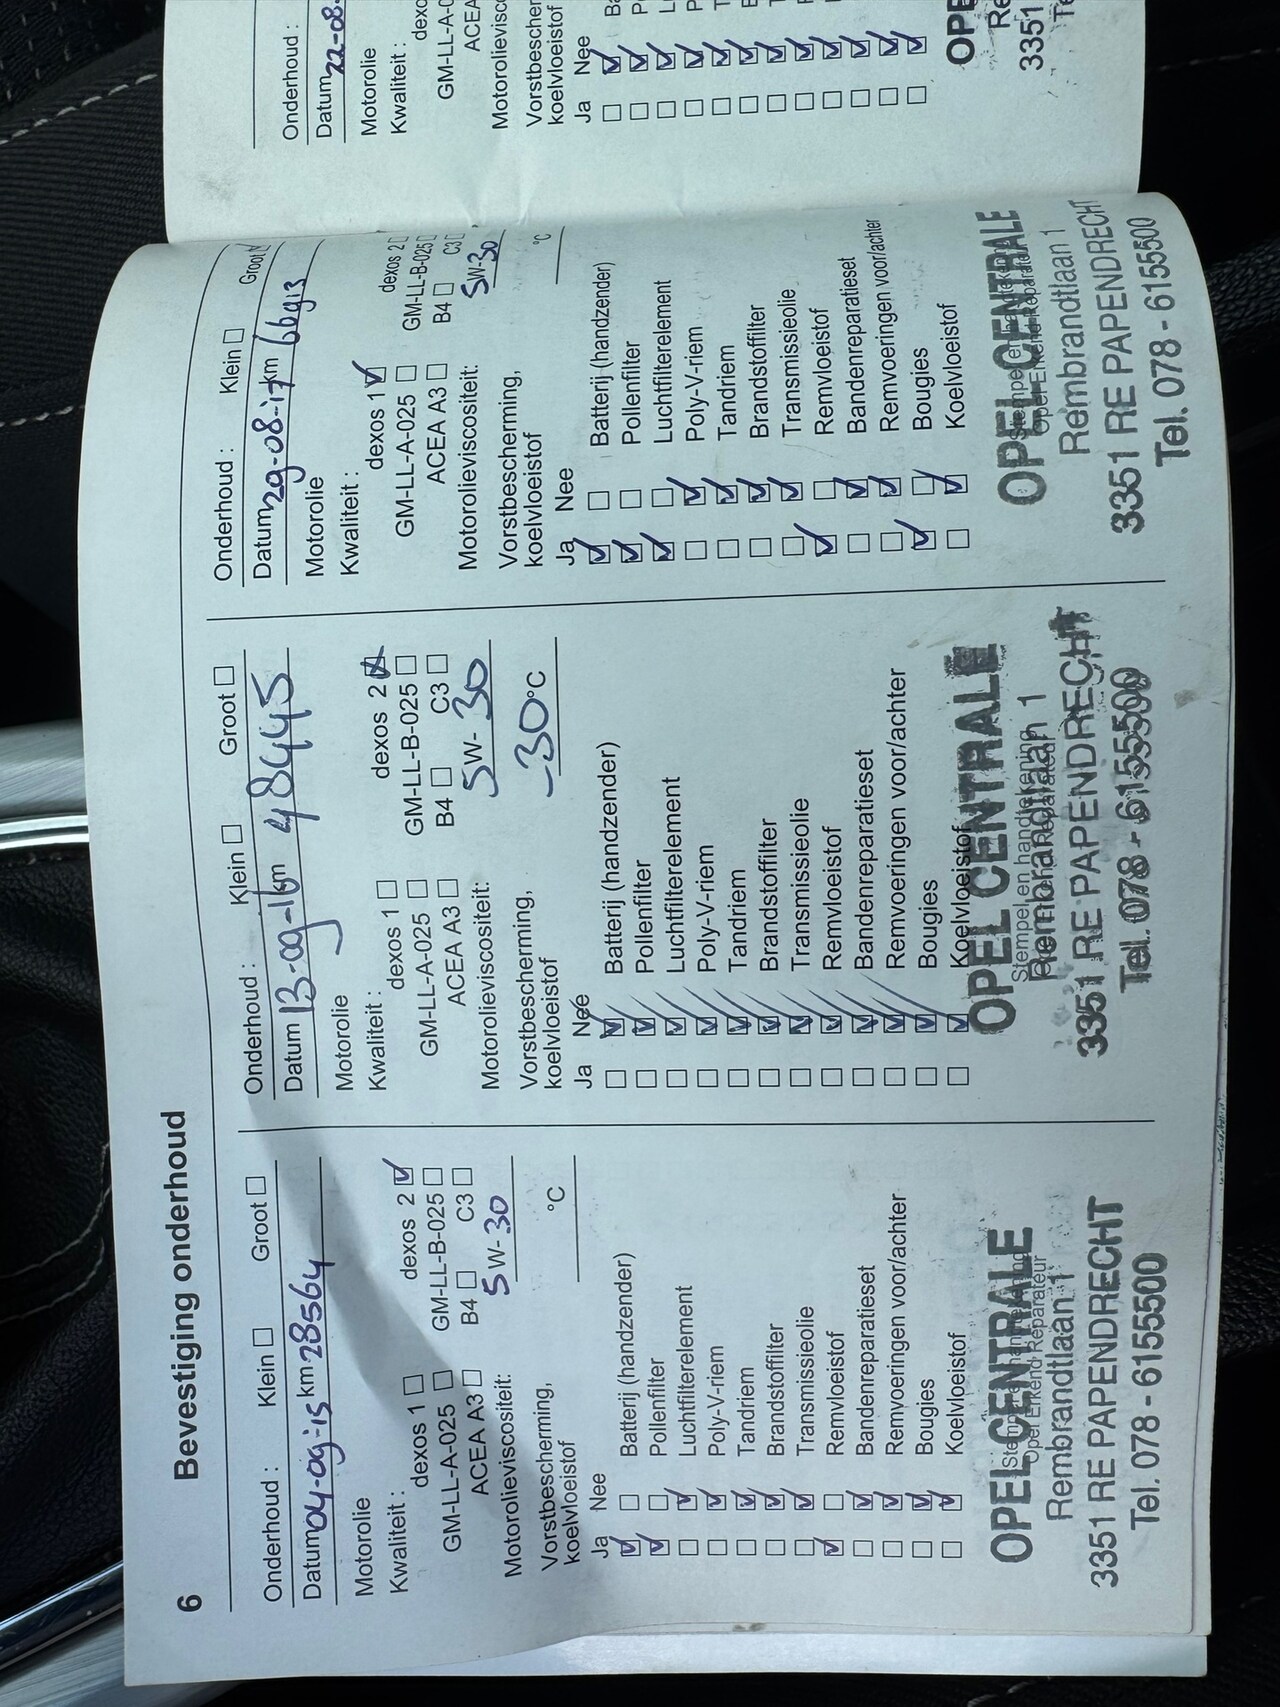 6 Bevestiging onderhoud
Onderhoud : Klein Groot
Datum 04-09-15 km 28564
Motorolie
Kwaliteit :
dexos 1 dexos 2
GM-LL-A-025 GM-LL-B-025
ACEA A3 B4 C3
Motorolieviscositeit: 5W-30
Vorstbescherming,
koelvloeistof °C
Ja Nee
Batterij (handzender)
Pollenfilter
Luchtfilterelement
Poly-V-riem
Tandriem
Brandstoffilter
Transmissieolie
Remvloeistof
Bandenreparatieset
Remvoeringen voor/achter
Bougies
Koelvloeistof
OPEL CENTRALE
Opel Erkend Reparateur
Rembrandtlaan 1
3351 RE PAPENDRECHT
Tel. 078 - 6155500
Onderhoud : Klein Groot
Datum 13-09-16 km 48445
Motorolie
Kwaliteit :
dexos 1 dexos 2
GM-LL-A-025 GM-LL-B-025
ACEA A3 B4 C3
Motorolieviscositeit: 5W-30
Vorstbescherming,
koelvloeistof -30°C
Ja Nee
Batterij (handzender)
Pollenfilter
Luchtfilterelement
Poly-V-riem
Tandriem
Brandstoffilter
Transmissieolie
Remvloeistof
Bandenreparatieset
Remvoeringen voor/achter
Bougies
Koelvloeistof
OPEL CENTRALE
Stempel en handtekening
Rembrandtlaan 1
3351 RE PAPENDRECHT
Tel. 078 - 6155500
Onderhoud : Klein Groot
Datum 29-08-17 km 66913
Motorolie
Kwaliteit :
dexos 1 dexos 2
GM-LL-A-025 GM-LL-B-025
ACEA A3 B4 C3
Motorolieviscositeit: 5W-30
Vorstbescherming,
koelvloeistof °C
Ja Nee
Batterij (handzender)
Pollenfilter
Luchtfilterelement
Poly-V-riem
Tandriem
Brandstoffilter
Transmissieolie
Remvloeistof
Bandenreparatieset
Remvoeringen voor/achter
Bougies
Koelvloeistof
OPEL CENTRALE
Opel Erkend Reparateur
Rembrandtlaan 1
3351 RE PAPENDRECHT
Tel. 078 - 6155500
Onderhoud :
Datum 22-08-
Motorolie
Kwaliteit :
dexo
GM-LL-A-0
ACEA
Motorolievisco
Vorstbescher
koelvloeistof
Ja Nee
OPE
Re
3351
Te